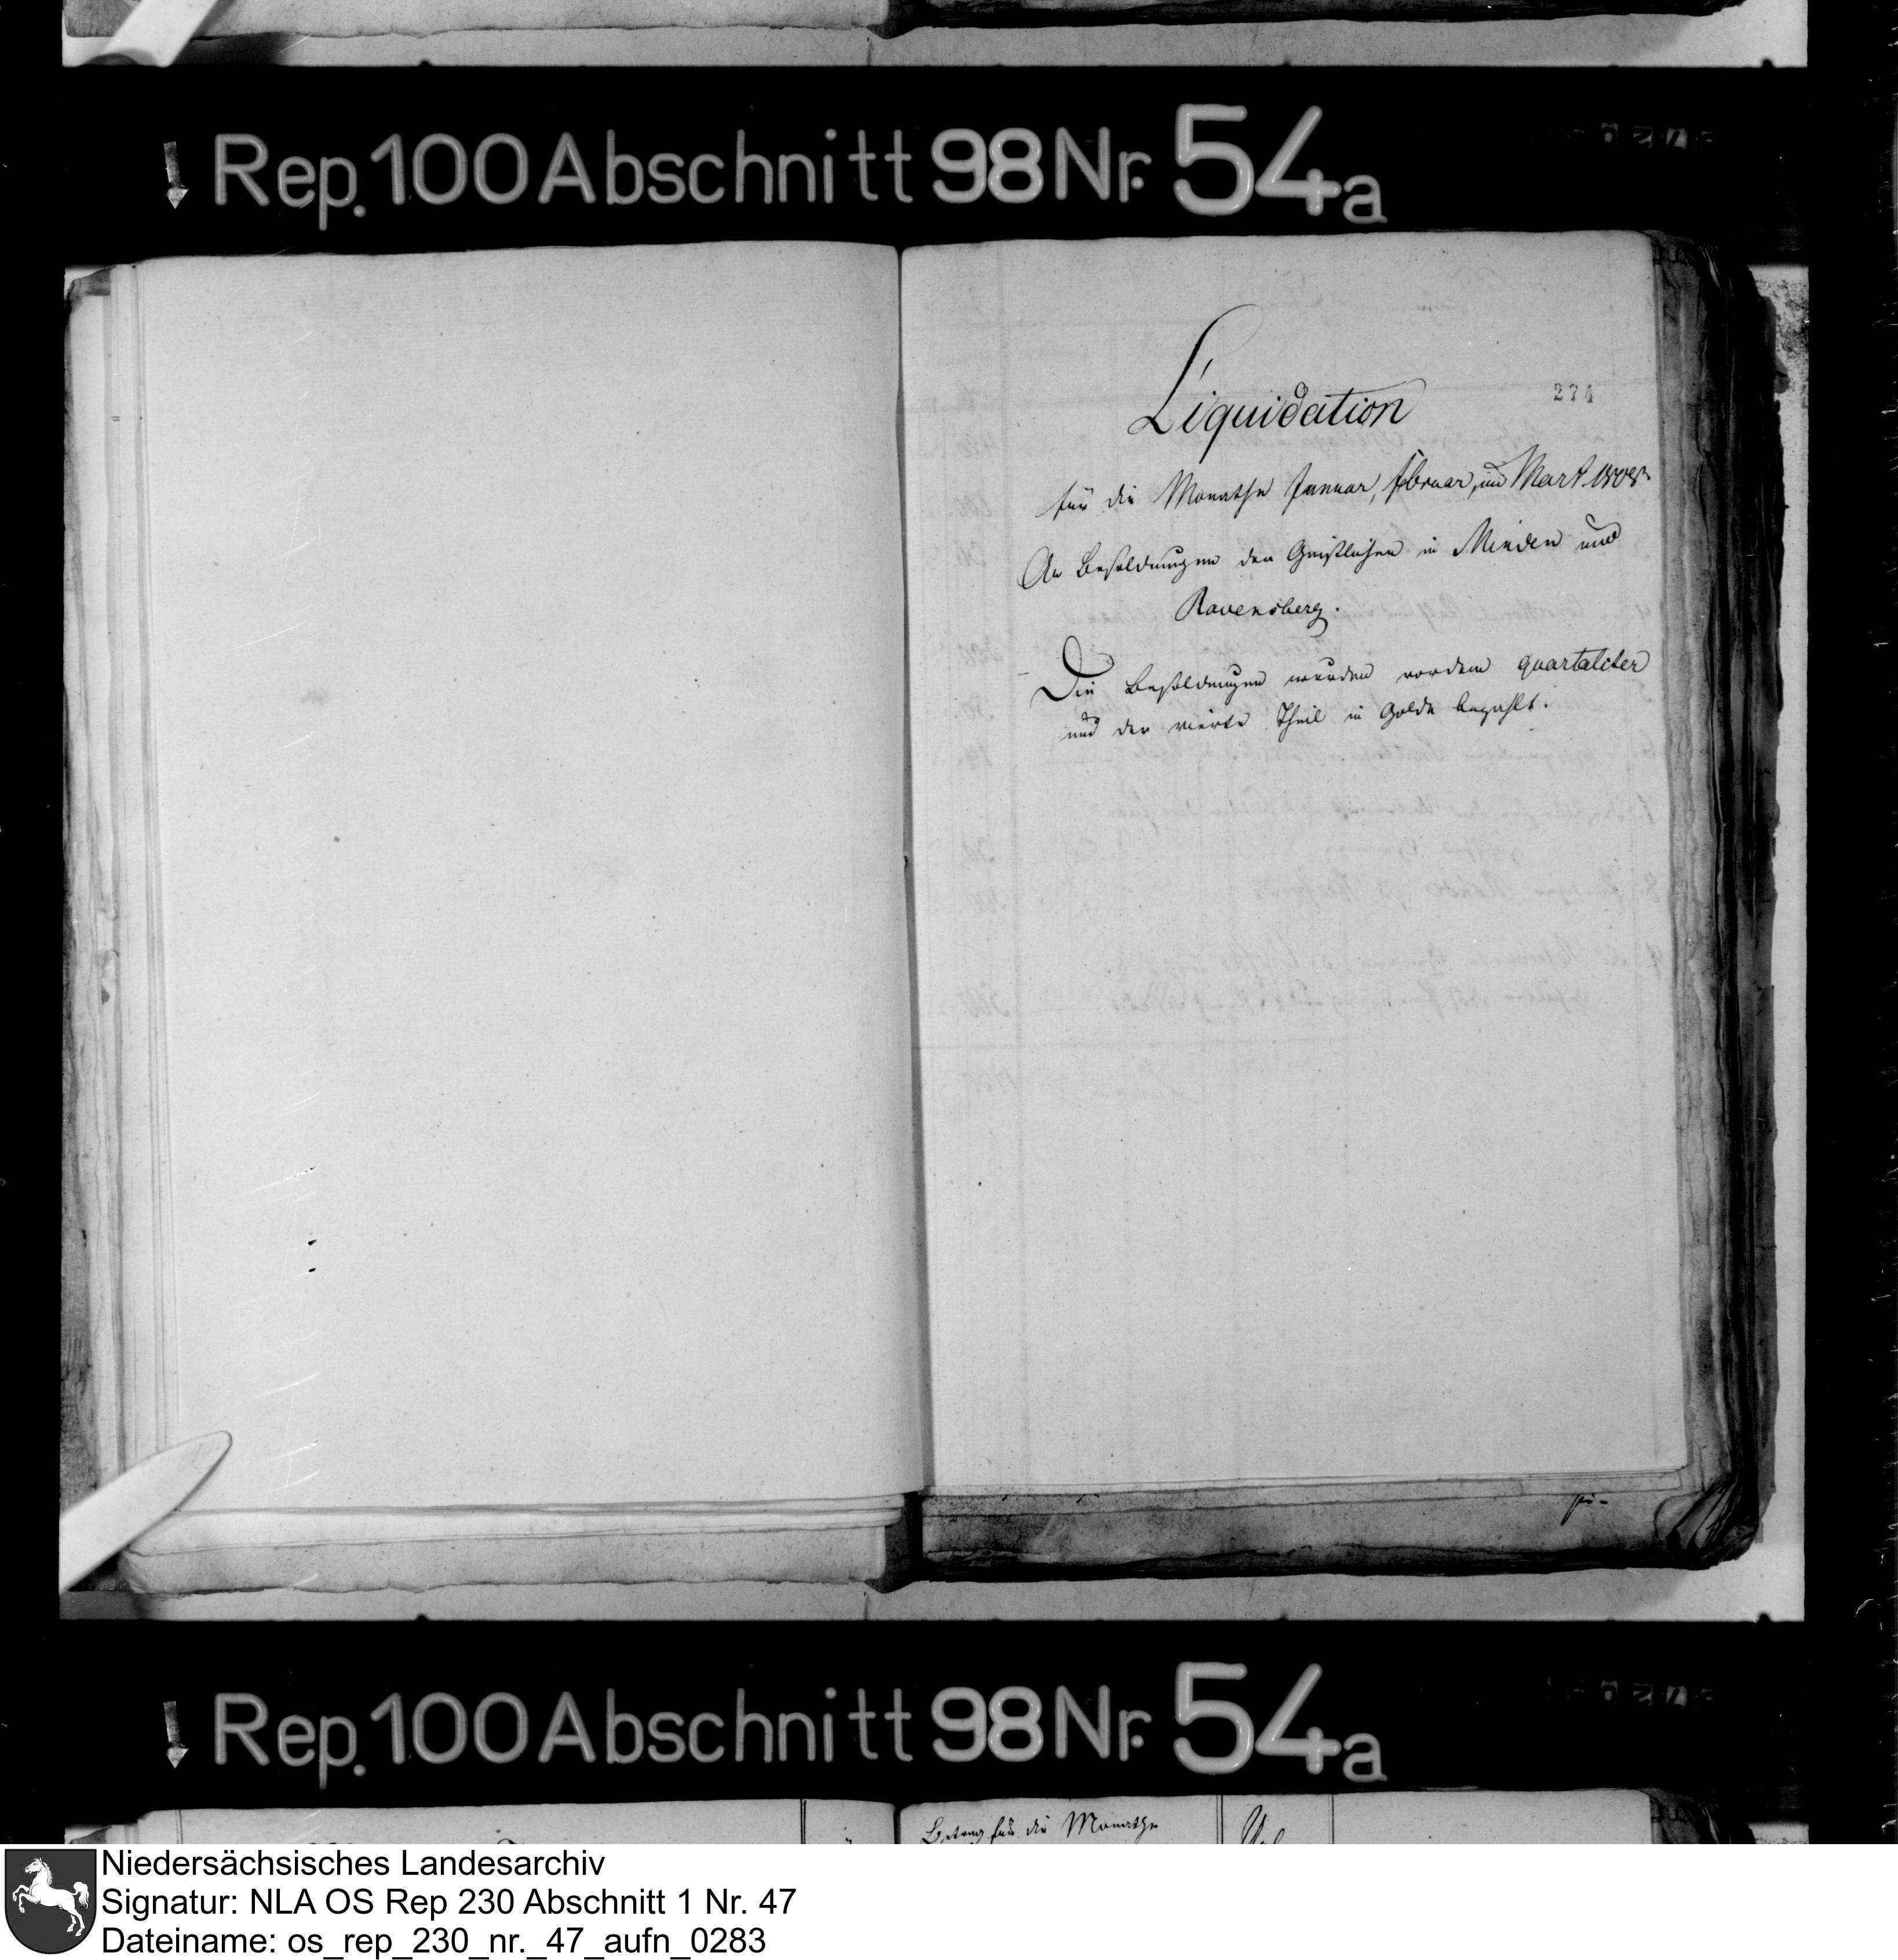 Rep. 100 Abschnitt 98 Nr. 54a
274
Liquidation
für die Monathe Januar, Februar, und Mart 1808.
An Besoldungen der Geistlichen in Minden und
Ravensberg.
Die Besoldungen wurden vordem quartaliter
und der vierte Theil in Golde bezahlt.
Rep. 100 Abschnitt 98 Nr. 54a
Betrag für die Monathe
Niedersächsisches Landesarchiv
Signatur: NLA OS Rep 230 Abschnitt 1 Nr. 47
Dateiname: os_rep_230_nr._47_aufn_0283